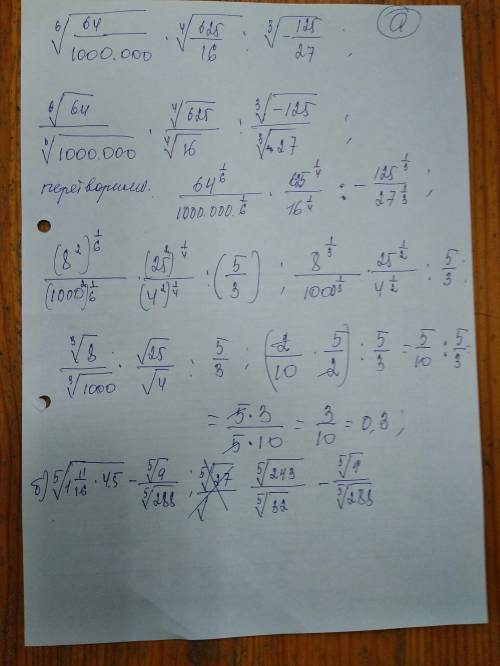 а
⁶√(64/1000.000) · ⁴√(625/16) : ³√(-125/27) ;
⁶√64/⁶√1000.000 · ⁴√625/⁴√16 : ³√-125/³√27 ;
перетворимо: 64^(1/6)/1000.000^(1/6) · 625^(1/4)/16^(1/4) : - 125^(1/3)/27^(1/3) ;
(8²)^(1/6)/(1000²)^(1/6) · (25²)^(1/4)/(4²)^(1/4) : (5/3) ; 8^(1/3)/1000^(1/3) · 25^(1/2)/4^(1/2) : 5/3 :
³√8/³√1000 · √25/√4 : 5/3 ; (2/10 · 5/2) : 5/3 = 5/10 : 5/3
= 5·3/5·10 = 3/10 = 0,3 ;
б) ⁵√(1 11/16 · 4.5) - ⁵√9/⁵√288 ; ⁵√243/⁵√32 - ⁵√9/⁵√288